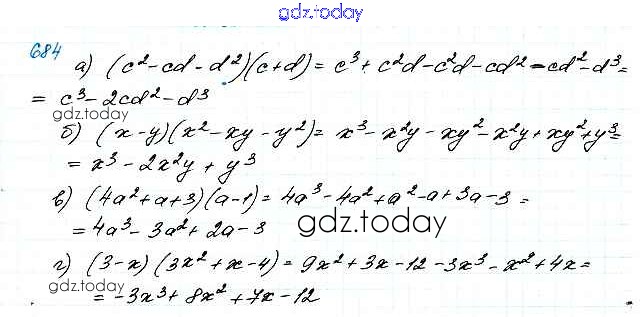 gdz.today
684
а) (c²-cd-d²)(c+d) = c³+c²d-c²d-cd²-cd²-d³=
= c³-2cd²-d³
gdz.today
б) (x-y)(x²-xy-y²)= x³-x²y-xy²-x²y+xy²+y³=
= x³-2x²y+y³
в) (4a²+a+3)(a-1)=4a³-4a²+a²-a+3a-3=
=4a³-3a²+2a-3
gdz.today
г) (3-x)(3x²+x-4)=9x²+3x-12-3x³-x²+4x=
gdz.today
=-3x³+8x²+7x-12